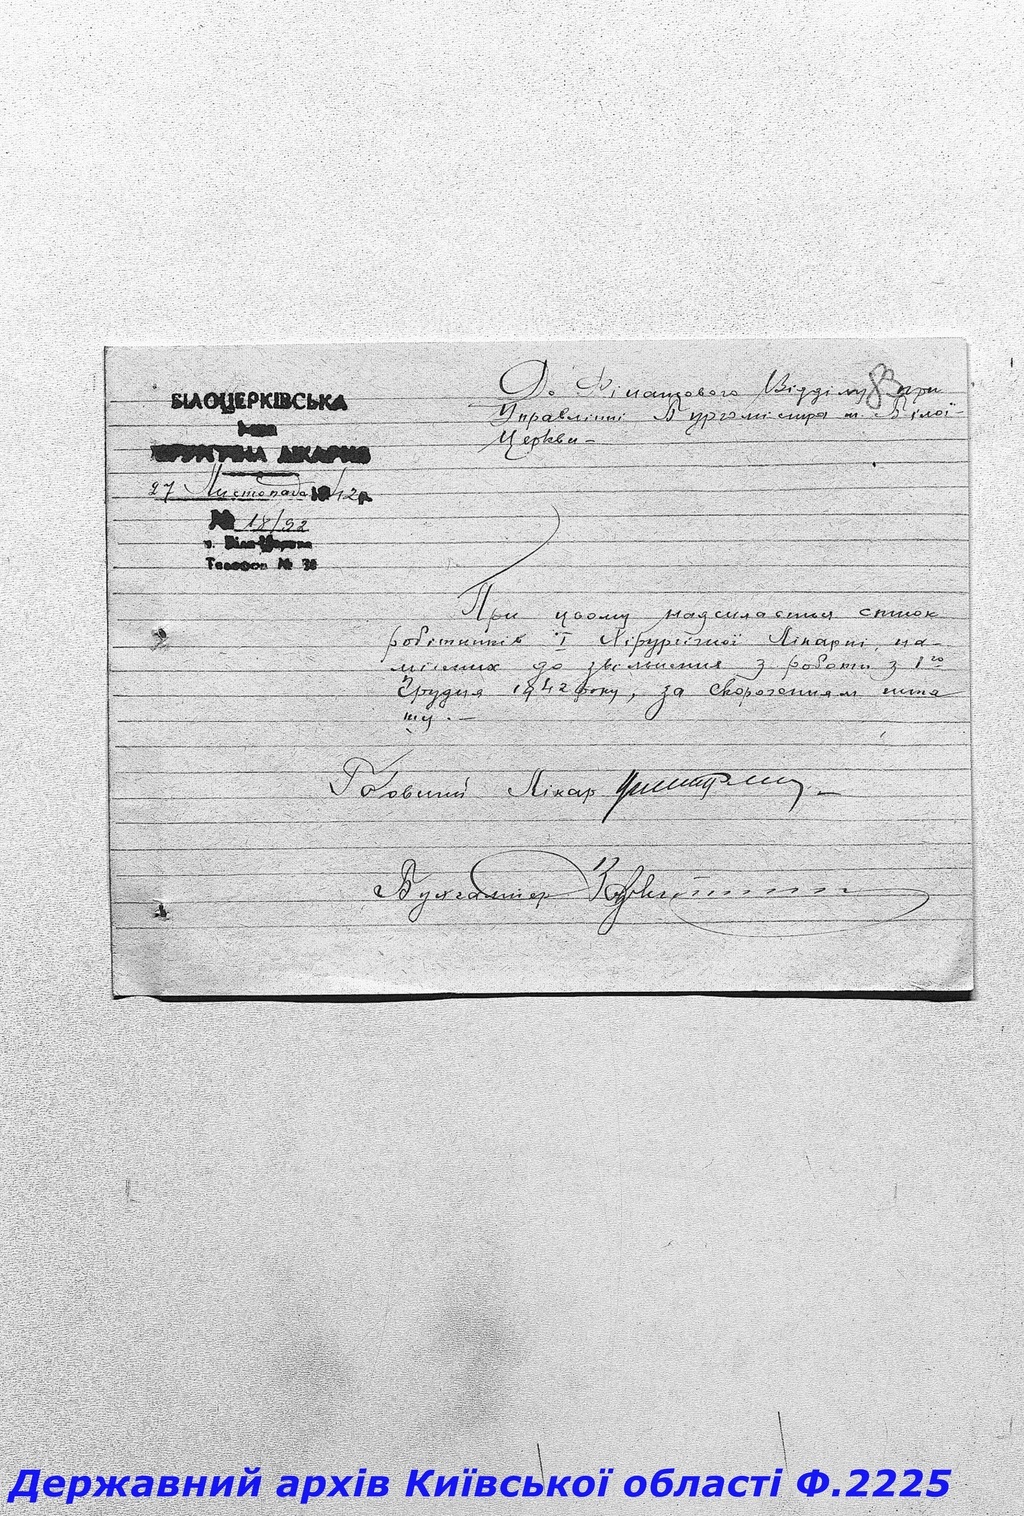 БІЛОЦЕРКІВСЬКА
І-ша
ХІРУРГІЧНА ЛІКАРНЯ
27 Листопада 1942 р.
№ 18/92
м. Біла-Церква
Телефон №
83
До Фінансового Відділу при
Управлінні Бургомістра м. Білої-
Церкви -
При цьому надсилається список
робітників І Хірургічної Лікарні, на-
мічених до звільнення з роботи з 1го
Грудня 1942 року, за скороченням шта
ту. -
Головний Лікар
Бухгалтер
Державний архів Київської області Ф.2225